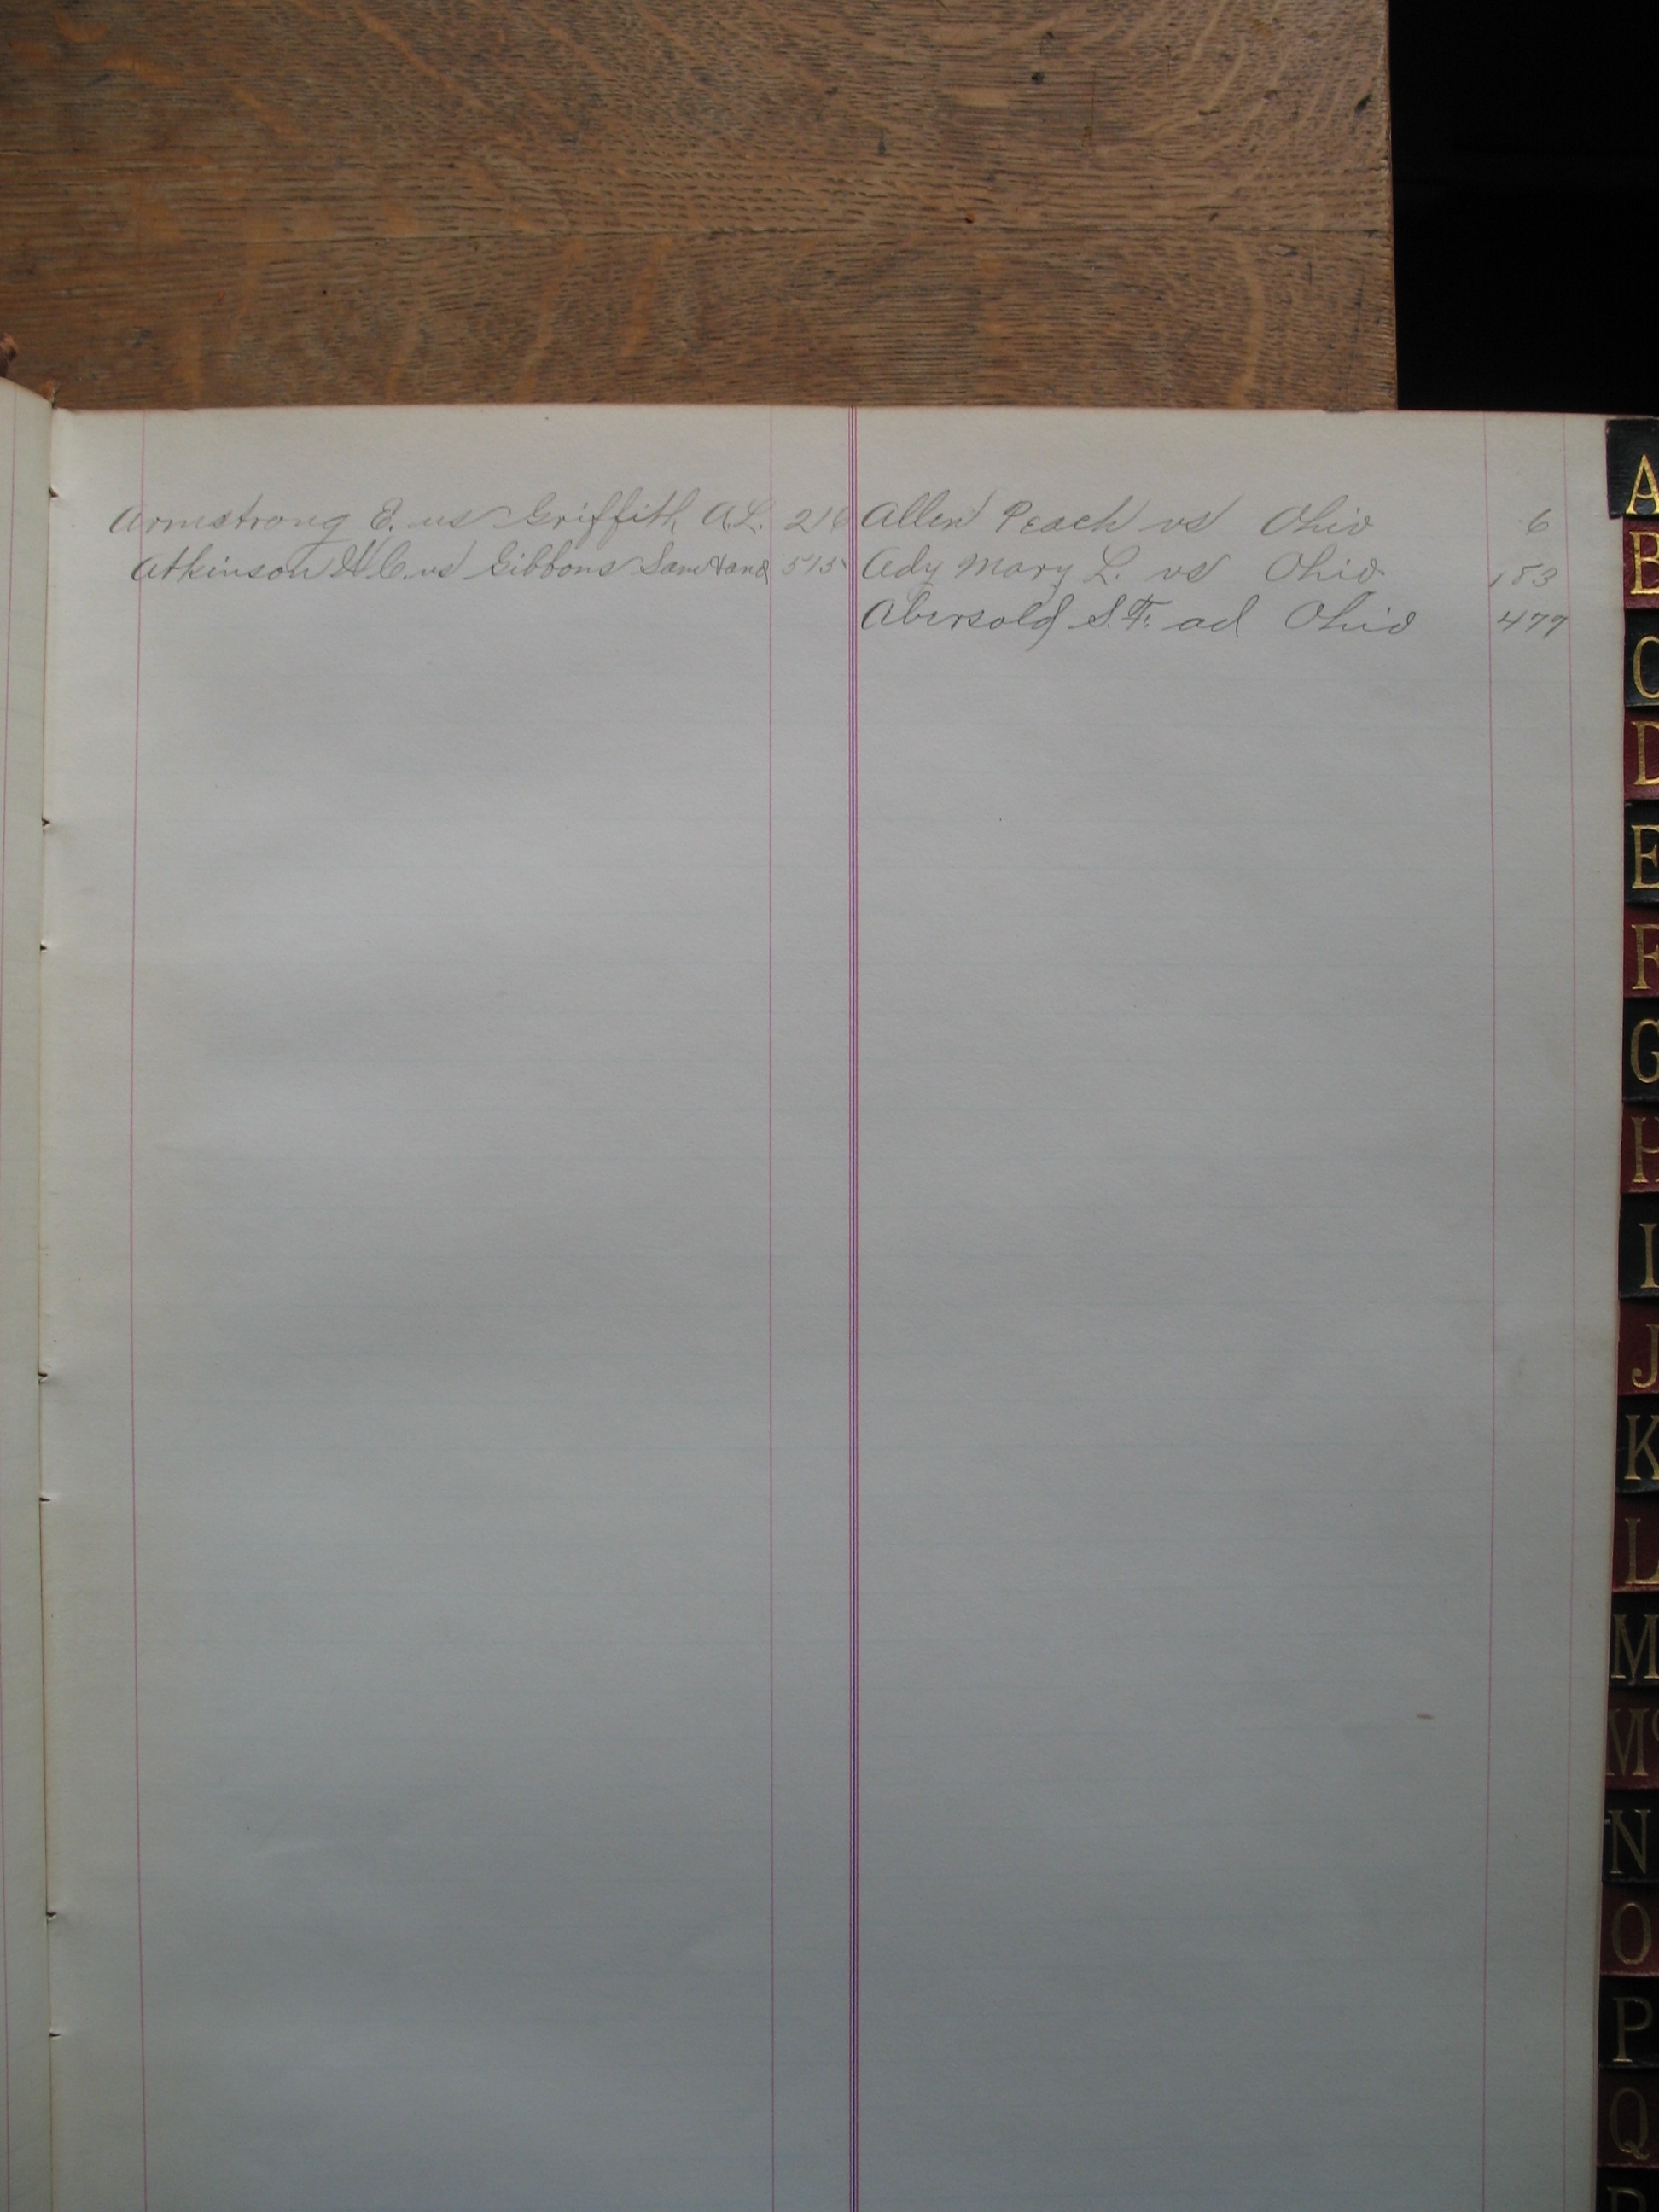 Armstrong E. vs Griffith A.L. 216
Atkinson vs Gibbons Sam 515
Allen Peach vs Ohio 6
Ady Mary L. vs Ohio 183
Abersold S.F. ad Ohio 477
A
B
C
D
E
F
G
H
I
J
K
L
M
Mc
N
O
P
Q